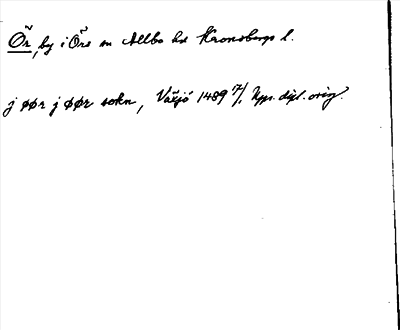 Ör, by i Örs sn Allbo hd Kronobergs l.
j øør j øør sokn, Växjö 1489 7/1, Upps. dipl. orig.